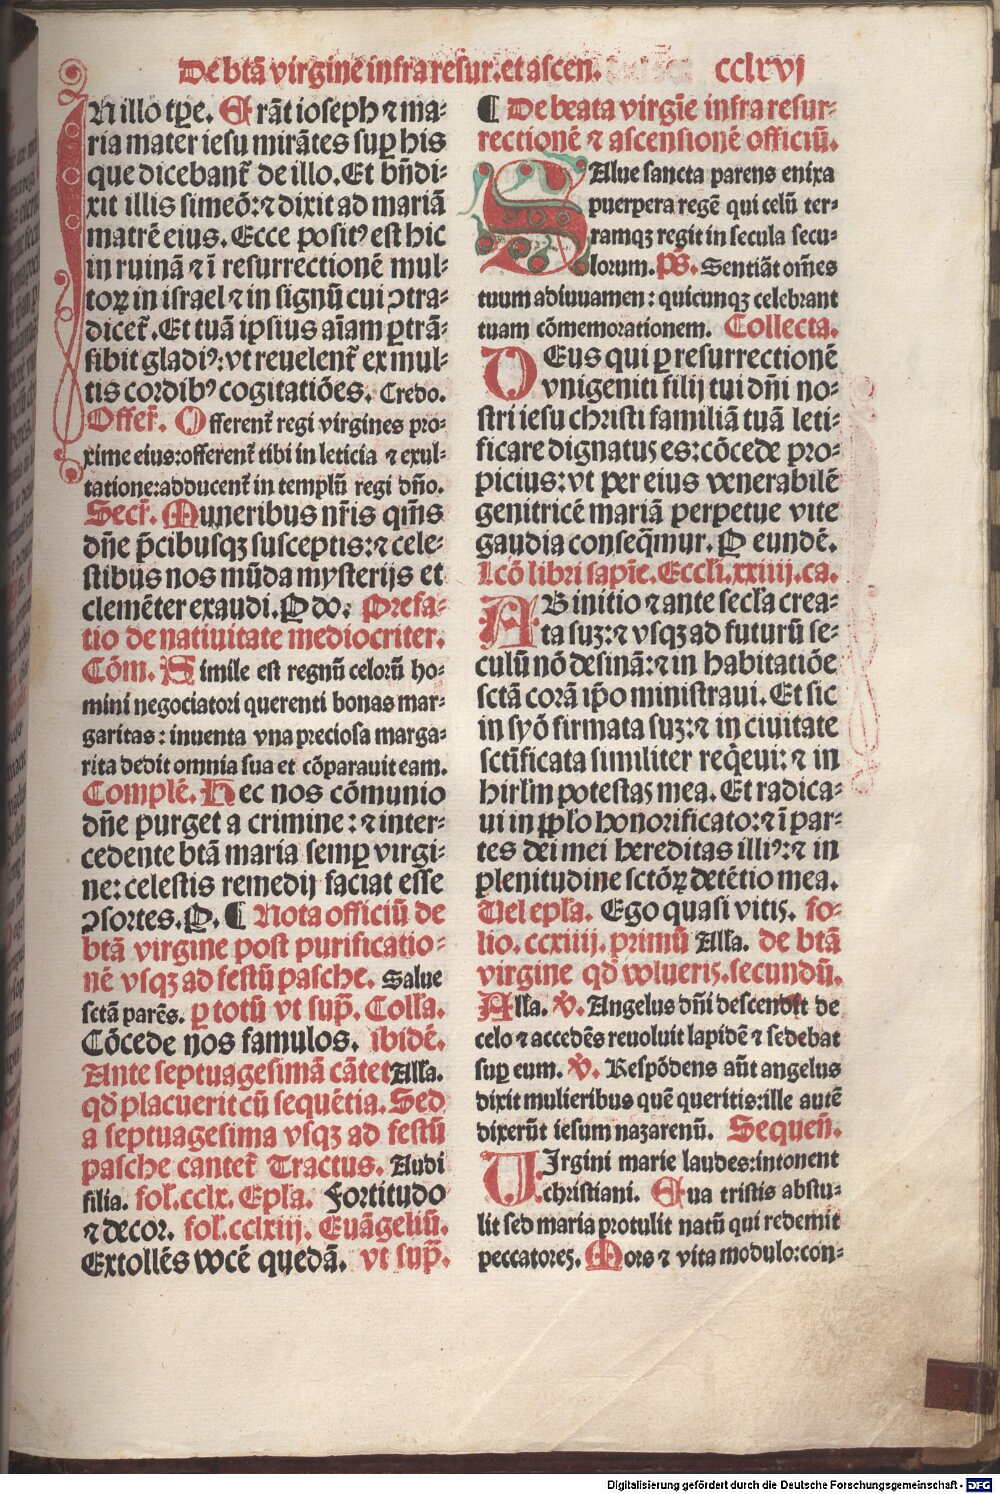 De btã virgine infra resur. et ascen. cclxvj
IN illo tp̃e. Erãt ioseph ⁊ ma-
ria mater iesu mirãtes sup his
que dicebant̃ de illo. Et bñdi-
xit illis simeõ: ⁊ dixit ad mariã
matrẽ eius. Ecce posit⁹ est hic
in ruinã ⁊ ĩ resurrectionẽ mul-
toꝝ in israel ⁊ in signũ cui ↄtra-
dicet̃. Et tuã ipsius aĩam ꝑtrã-
sibit gladi⁹: vt reuelent̃ ex mul-
tis cordib⁹ cogitatiões. Credo.
Offer̃. Offerent̃ regi virgines pro-
xime eius: offerent̃ tibi in leticia ⁊ exul-
tatione: adducent̃ in templũ regi dño.
Secr̃. Muneribus nr̃is qm̃s
dñe p̃cibusqꝫ susceptis: ⁊ cele-
stibus nos mũda mysterijs et
clemẽter exaudi. P do. Prefa-
tio de natiuitate mediocriter.
Cõm. Simile est regnũ celorũ ho-
mini negociatori querenti bonas mar-
garitas: inuenta vna preciosa marga-
rita dedit omnia sua et cõparauit eam.
Complẽ. Hec nos cõmunio
dñe purget a crimine: ⁊ inter-
cedente btã maria semꝑ virgi-
ne: celestis remedij faciat esse
ↄsortes. P. ¶ Nota officiũ de
btã virgine post purificatio-
nẽ vsqꝫ ad festũ pasche. Salue
sctã parẽs. ꝑ totũ vt sup̃. Coll̃a.
Cõcede nos famulos. ibidẽ.
Ante septuagesimã cãtet All̃a.
qd̃ placuerit cũ sequẽtia. Sed
a septuagesima vsqꝫ ad festũ
pasche cantet̃ Tractus. Audi
filia. fol̃. cclx. Epl̃a. Fortitudo
⁊ decor. fol̃. cclxiij. Euãgeliũ.
Extollẽs vocẽ quedã. vt sup̃.
¶ De beata virgĩe infra resur-
rectionẽ ⁊ ascensionẽ officiũ.
SAlue sancta parens enixa
puerpera regẽ qui celũ ter-
ramqꝫ regit in secula secu-
lorum. Ps̃. Sentiãt om̃es
tuum adiuuamen: quicunqꝫ celebrant
tuam cõmemorationem. Collecta.
DEus qui ꝑ resurrectionẽ
vnigeniti filij tui dñi no-
stri iesu christi familiã tuã leti-
ficare dignatus es: cõcede pro-
picius: vt per eius venerabilẽ
genitricẽ mariã perpetue vite
gaudia conseq̃mur. P eundẽ.
Lcõ libri sapĩe. Eccli. xxiiij. ca.
AB initio ⁊ ante secl̃a crea-
ta suꝫ: ⁊ vsqꝫ ad futurũ se-
culũ nõ desinã: ⁊ in habitatiõe
sctã corã ip̃o ministraui. Et sic
in syõ firmata suꝫ: ⁊ in ciuitate
sctĩficata similiter req̃eui: ⁊ in
hirl̃m potestas mea. Et radica-
ui in pp̃lo honorificato: ⁊ ĩ par-
tes dei mei hereditas illi⁹: ⁊ in
plenitudine sctõꝝ detẽtio mea.
Uel epl̃a. Ego quasi vitis. fo-
lio. ccxiiij. primũ All̃a. de btã
virgine qd̃ volueris. secundũ.
All̃a. V̓. Angelus dñi descendit de
celo ⁊ accedẽs reuoluit lapidẽ ⁊ sedebat
suꝑ eum. V̓. Respõdens aũt angelus
dixit mulieribus quẽ queritis: ille autẽ
dixerũt iesum nazarenũ. Sequeñ.
UIrgini marie laudes: intonent
christiani. Eua tristis abstu-
lit sed maria protulit natũ qui redemit
peccatores. Mors ⁊ vita modulo: con-
Digitalisierung gefördert durch die Deutsche Forschungsgemeinschaft - DFG